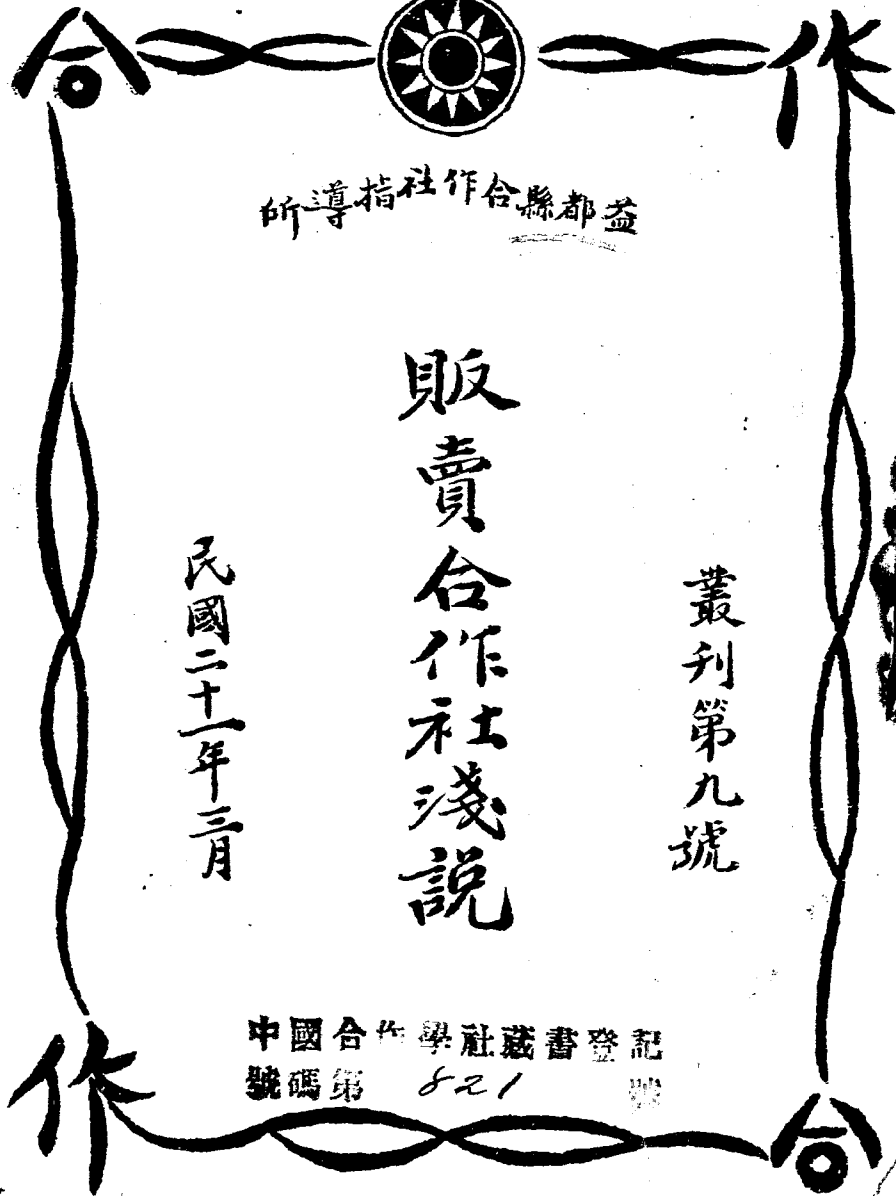 合作
益都縣合作社指導所
叢刊第九號
販賣合作社淺說
民國二十一年三月
中國合作學社藏書登記
號碼第 821 號
作合